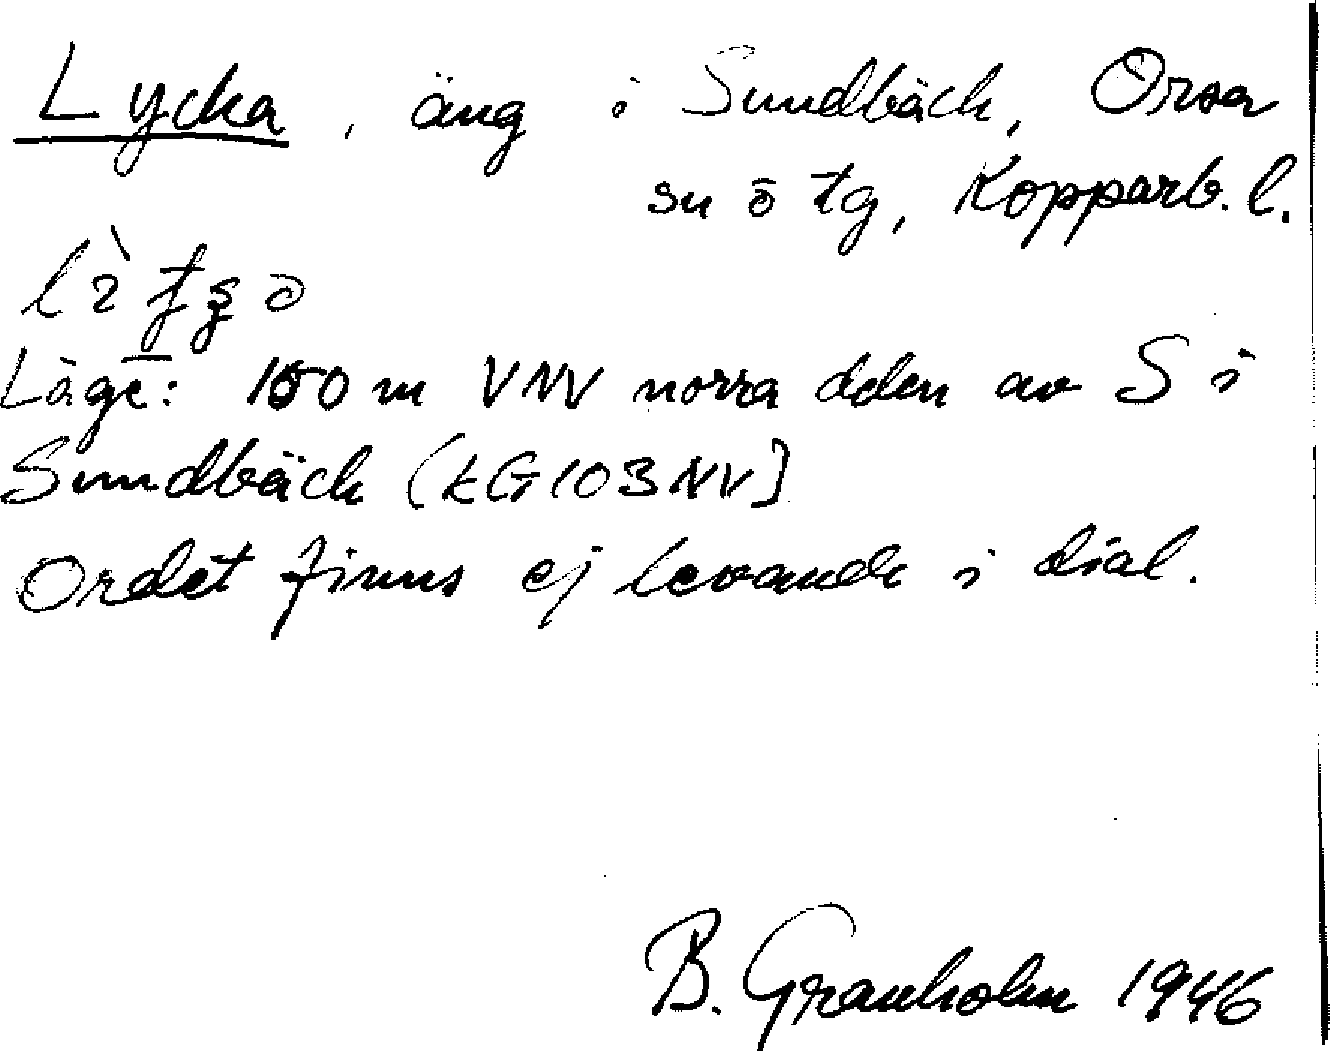 Lycka, äng i Sundbäck, Orsa
su ö tg, Kopparb. l.
Läge: 100 m VNV norra delen av S i
Sundbäck (EG 103 NV)
Ordet finns ej levande i dial.
B. Granholm 1946